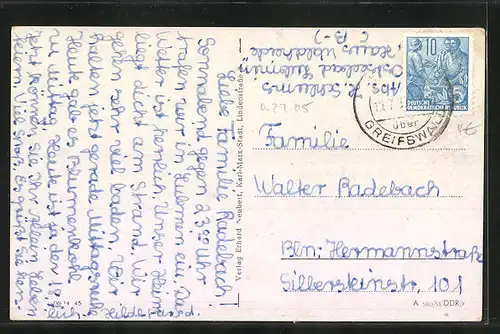 Liebe Familie Radebach!
Sonnabend gegen 23⁰⁰ Uhr
trafen wir in Lubmin ein. Das
Wetter ist herrlich. Unser Heim
liegt dicht am Strand. Wir
gehen sehr viel baden. Wir
halten jetzt gerade Mittagsruhe
Heute gab es Blumenkohl
zu Mittag. Heute ist ja der 18.
Jetzt können Sie Ihr Leben
feiern. Viel Spaß. Es grüßt Sie
Hilde
Verlag Erhard Neubert, Karl-Marx-Stadt, Lindenstraße
Abs. H.
Ostseebad Lubmin
Haus Waldheide
10
DEUTSCHE
DEMOKRATISCHE REPUBLIK
über
GREIFSWALD
Familie
Walter Radebach
Bln: Hermannstraße
Silbersteinstr, 101
DDR